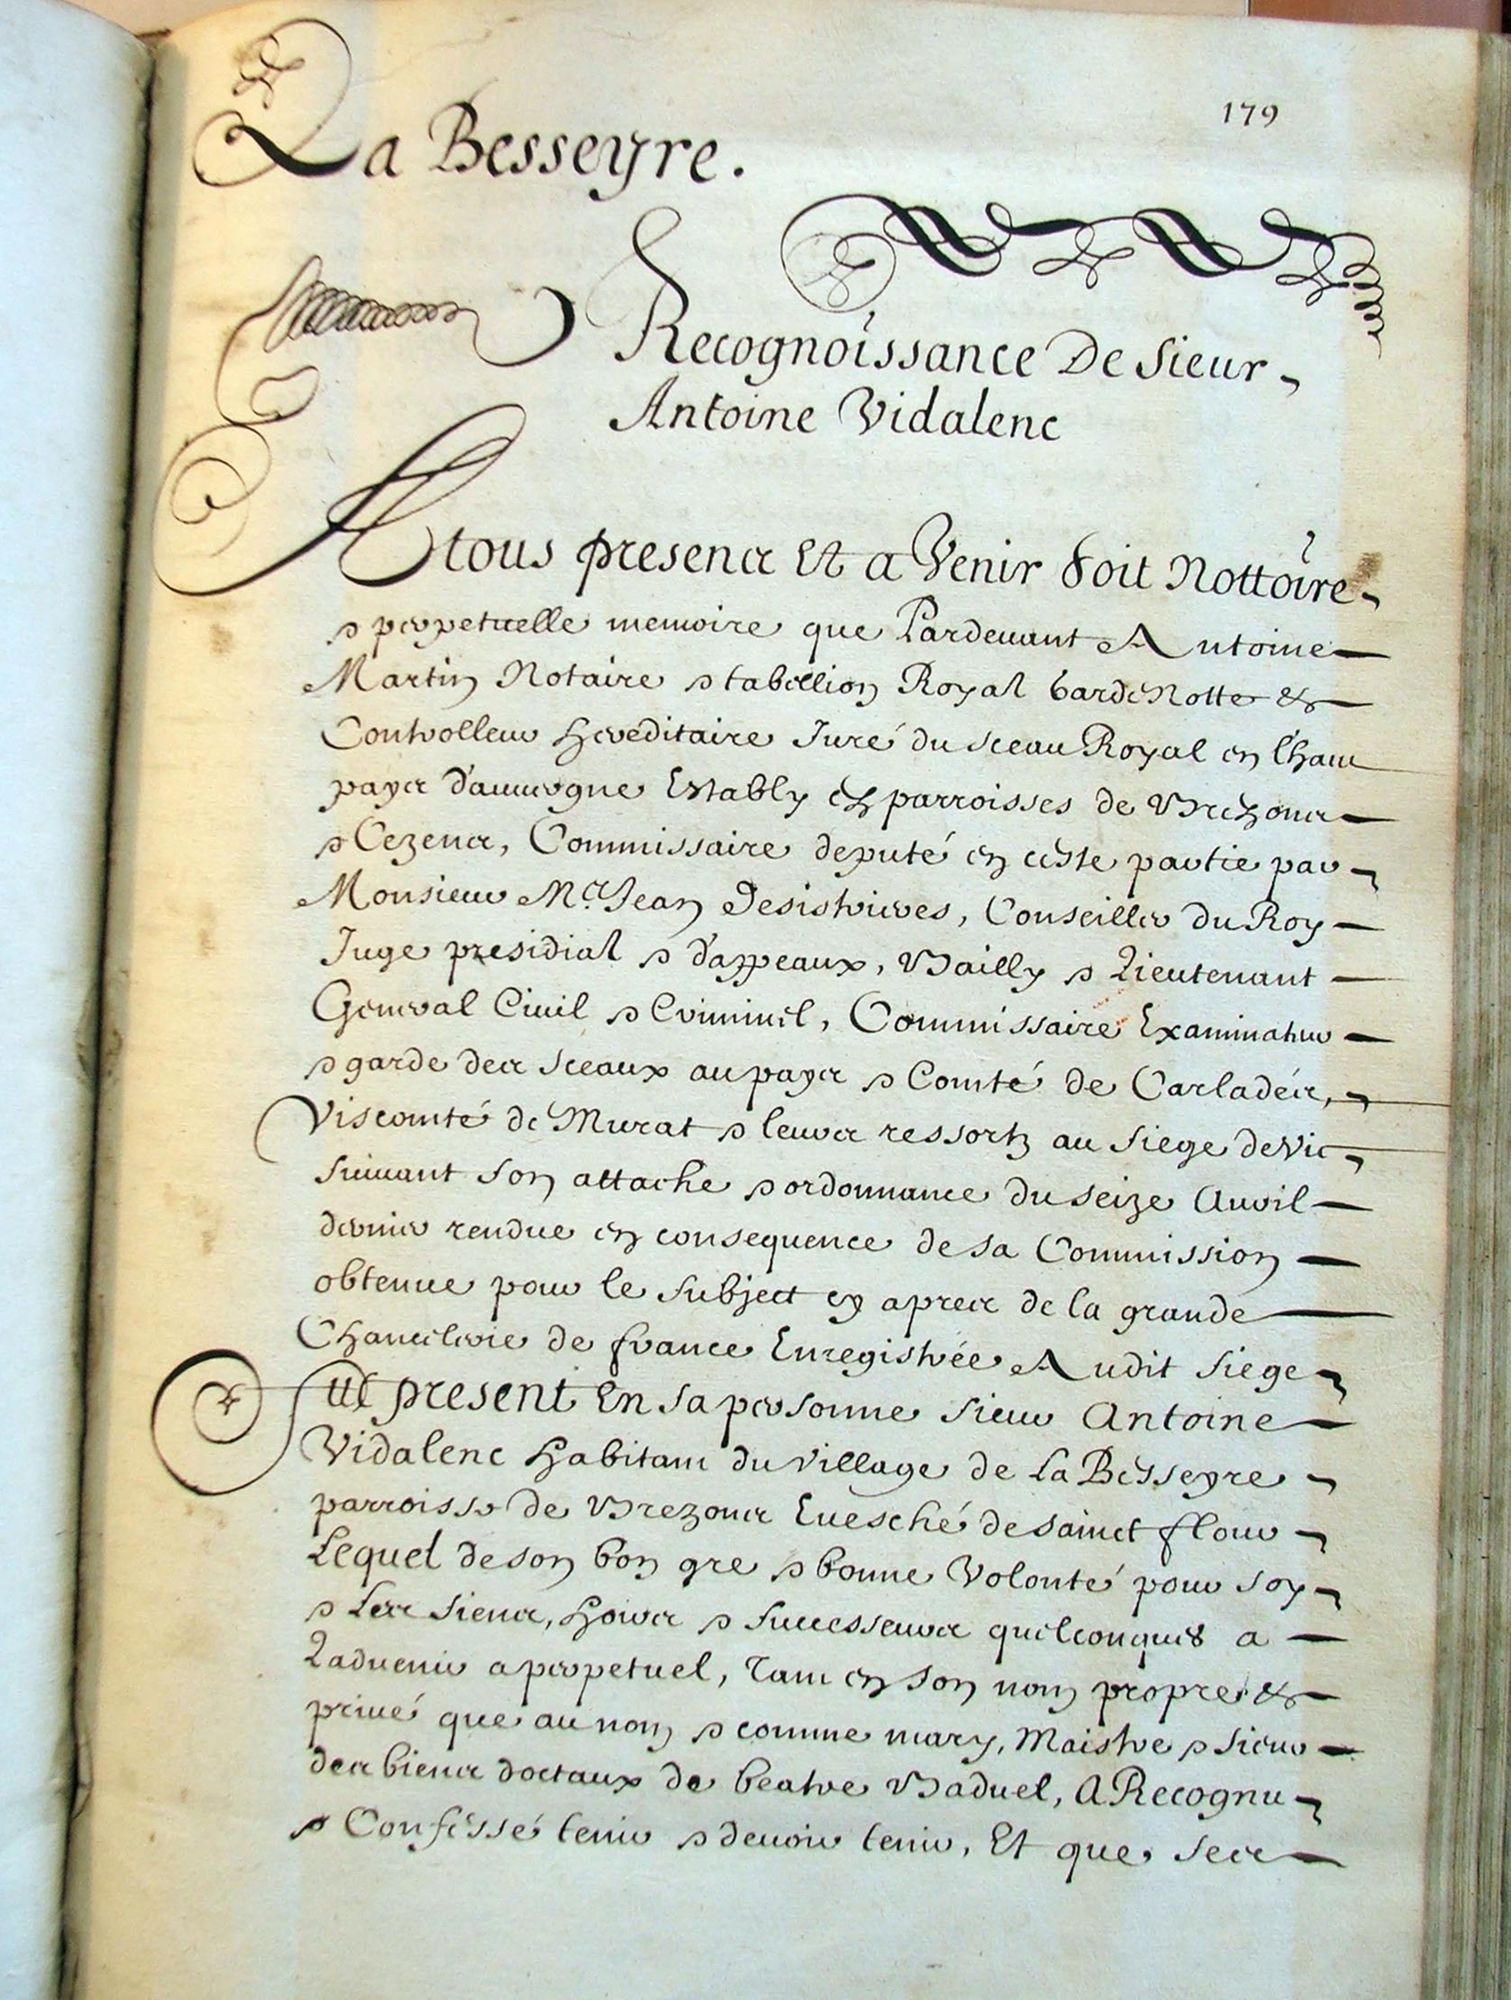 179
La Besseyre.
Recognoissance De sieur
Antoine Vidalenc
A tous presens Et a Venir soit Nottoire
& perpetuelle memoire que Pardeuant Antoine
Martin Notaire & tabellion Royal Garde Notte &
Controlleur hereditaire Juré du sceau Royal en l'haut
payx d'auuergne Estably es parroisses de Brezons
& Cezens, Commissaire deputé en ceste partie par
Monsieur Mr. Jean Desistrieres, Conseiller du Roy
Juge presidial & d'appeaux, Bailly & Lieutenant
General Ciuil & Criminel, Commissaire Examinateur
& garde des sceaux au pays & Comté de Carladés,
Viscomté de Murat & leurs ressortz au siege de Vic
suiuant son attache & ordonnance du seize Auril
dernier rendue en consequence de sa Commission
obtenue pour le subject cy apres de la grande
Chancelerie de france Enregistrée Audit siege
fut present En sa personne sieur Antoine
Vidalenc habitant du village de La Besseyre
parroisse de Brezons Euesché de sainct flour
Lequel de son bon gre & bonne Volonté pour soy
& Les siens, hoirs & successeurs quelconques a
Laduenir a perpetuel, Tant en son nom propre &
priué que au nom & comme mary, Maistre & sieur
des biens doctaux de beatre Baduel, A Recognu
& Confessé tenir & deuoir tenir, Et que ses